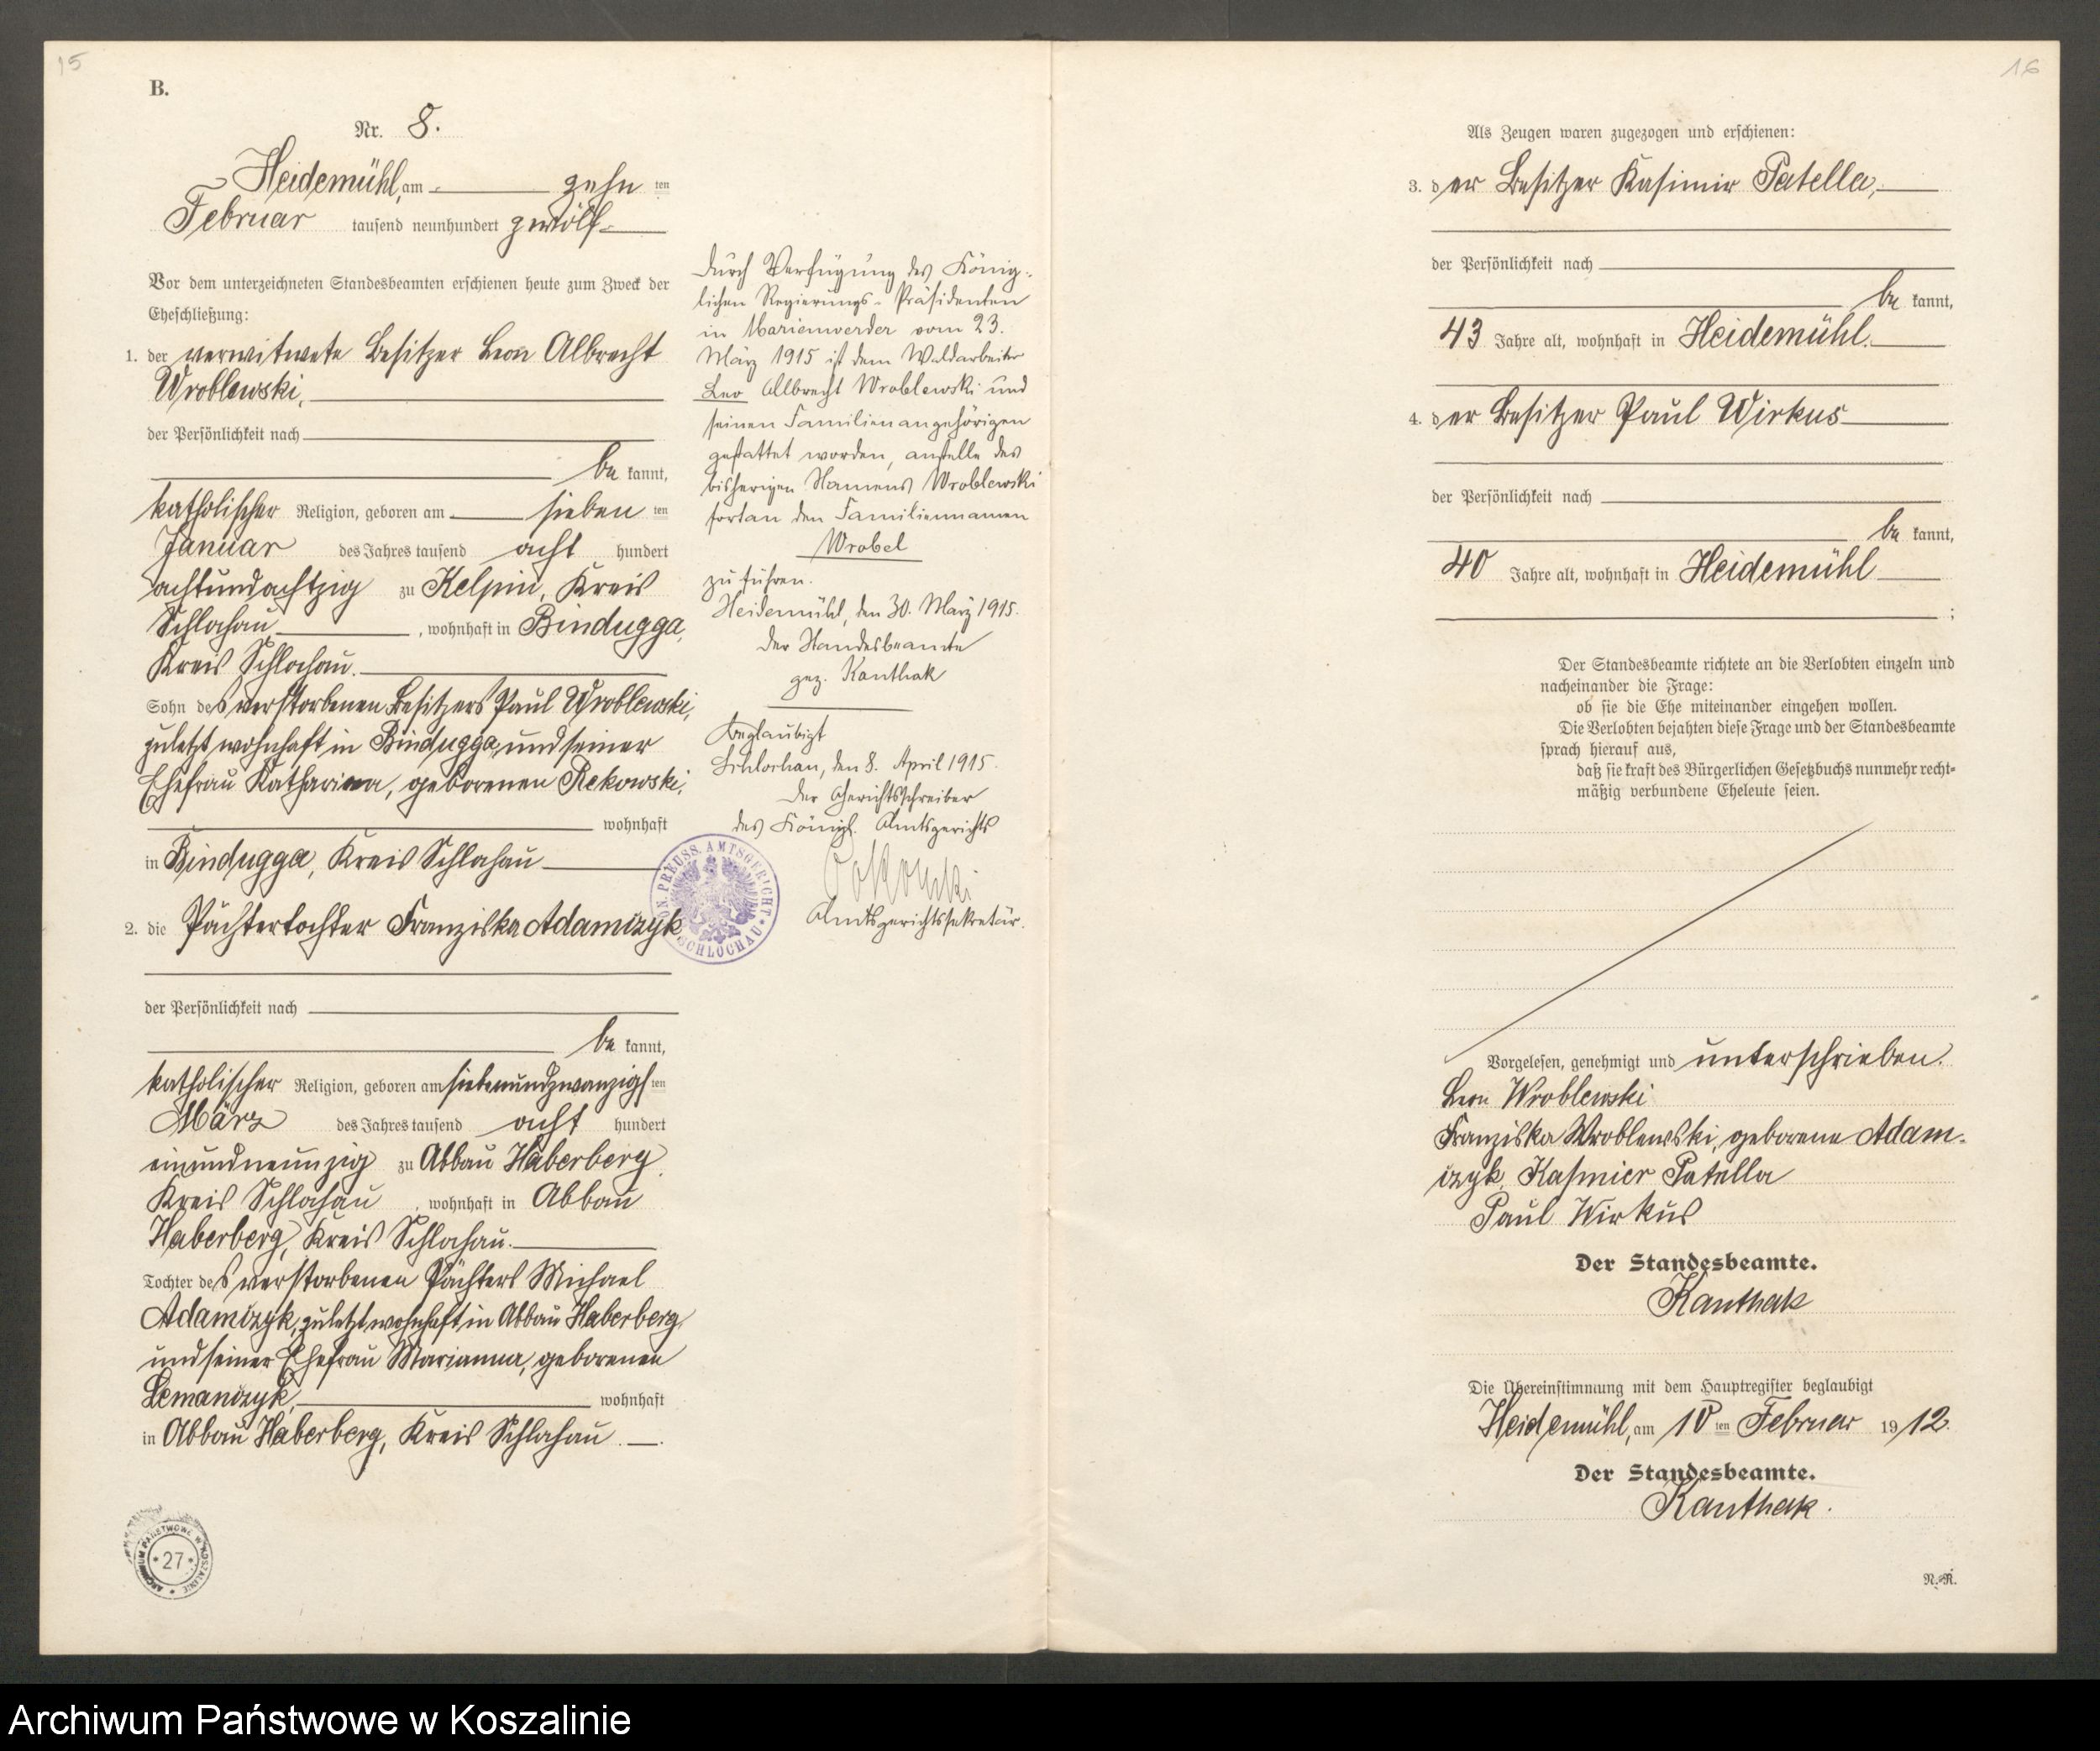 15
B.
Nr. 8.
Heidemühl, am zehn ten
Februar tausend neunhundert zwölf
Vor dem unterzeichneten Standesbeamten erschienen heute zum Zweck der
Eheschließung:
1. der verwitwete Besitzer Leon Albrecht
Wroblewski,
der Persönlichkeit nach
be kannt,
katholischer Religion, geboren am sieben ten
Januar des Jahres tausend acht hundert
achtundachtzig zu Kelpin, Kreis
Schlochau, wohnhaft in Bindugga,
Kreis Schlochau.
Sohn des verstorbenen Besitzers Paul Wroblewski,
zuletzt wohnhaft in Bindugga, und seiner
Ehefrau Katharina, geborenen Rekowski,
wohnhaft
in Bindugga, Kreis Schlochau
2. die Pächtertochter Franziska Adamczyk
der Persönlichkeit nach
be kannt,
katholischer Religion, geboren am siebenundzwanzigs ten
März des Jahres tausend acht hundert
einundneunzig zu Abbau Haberberg
Kreis Schlochau, wohnhaft in Abbau
Haberberg, Kreis Schlochau.
Tochter des verstorbenen Pächters Michael
Adamczyk, zuletzt wohnhaft in Abbau Haberberg,
und seiner Ehefrau Marianna, geborenen
Lemanczyk, wohnhaft
in Abbau Haberberg, Kreis Schlochau.
Durch Verfügung des König-
lichen Regierungs-Präsidenten
in Marienwerder vom 23.
März 1915 ist dem Waldarbeiter
Leo Albrecht Wroblewski und
seinen Familienangehörigen
gestattet worden, anstelle des
bisherigen Namens Wroblewski
fortan den Familiennamen
Wrobel
zu führen.
Heidemühl, den 30. März 1915.
Der Standesbeamte
gez. Kanthak
Beglaubigt
Schlochau, den 8. April 1915.
Der Gerichtsschreiber
des Königl. Amtsgerichts
Amtsgerichtssekretär.
PREUSS. AMTSGERICHT SCHLOCHAU
ARCHIWUM PAŃSTWOWE W KOSZALINIE
27
16
Als Zeugen waren zugezogen und erschienen:
3. der Besitzer Kasimir Patella,
der Persönlichkeit nach
be kannt,
43 Jahre alt, wohnhaft in Heidemühl.
4. der Besitzer Paul Wirkus
der Persönlichkeit nach
be kannt,
40 Jahre alt, wohnhaft in Heidemühl
;
Der Standesbeamte richtete an die Verlobten einzeln und
nacheinander die Frage:
ob sie die Ehe miteinander eingehen wollen.
Die Verlobten bejahten diese Frage und der Standesbeamte
sprach hierauf aus,
daß sie kraft des Bürgerlichen Gesetzbuchs nunmehr recht-
mäßig verbundene Eheleute seien.
Vorgelesen, genehmigt und unterschrieben.
Leon Wroblewski
Franziska Wroblewski, geborene Adam-
czyk, Kasmier Patella
Paul Wirkus
Der Standesbeamte.
Kanthak
Die Übereinstimmung mit dem Hauptregister beglaubigt
Heidemühl, am 10 ten Februar 1912.
Der Standesbeamte.
Kanthak.
N.-R.
Archiwum Państwowe w Koszalinie